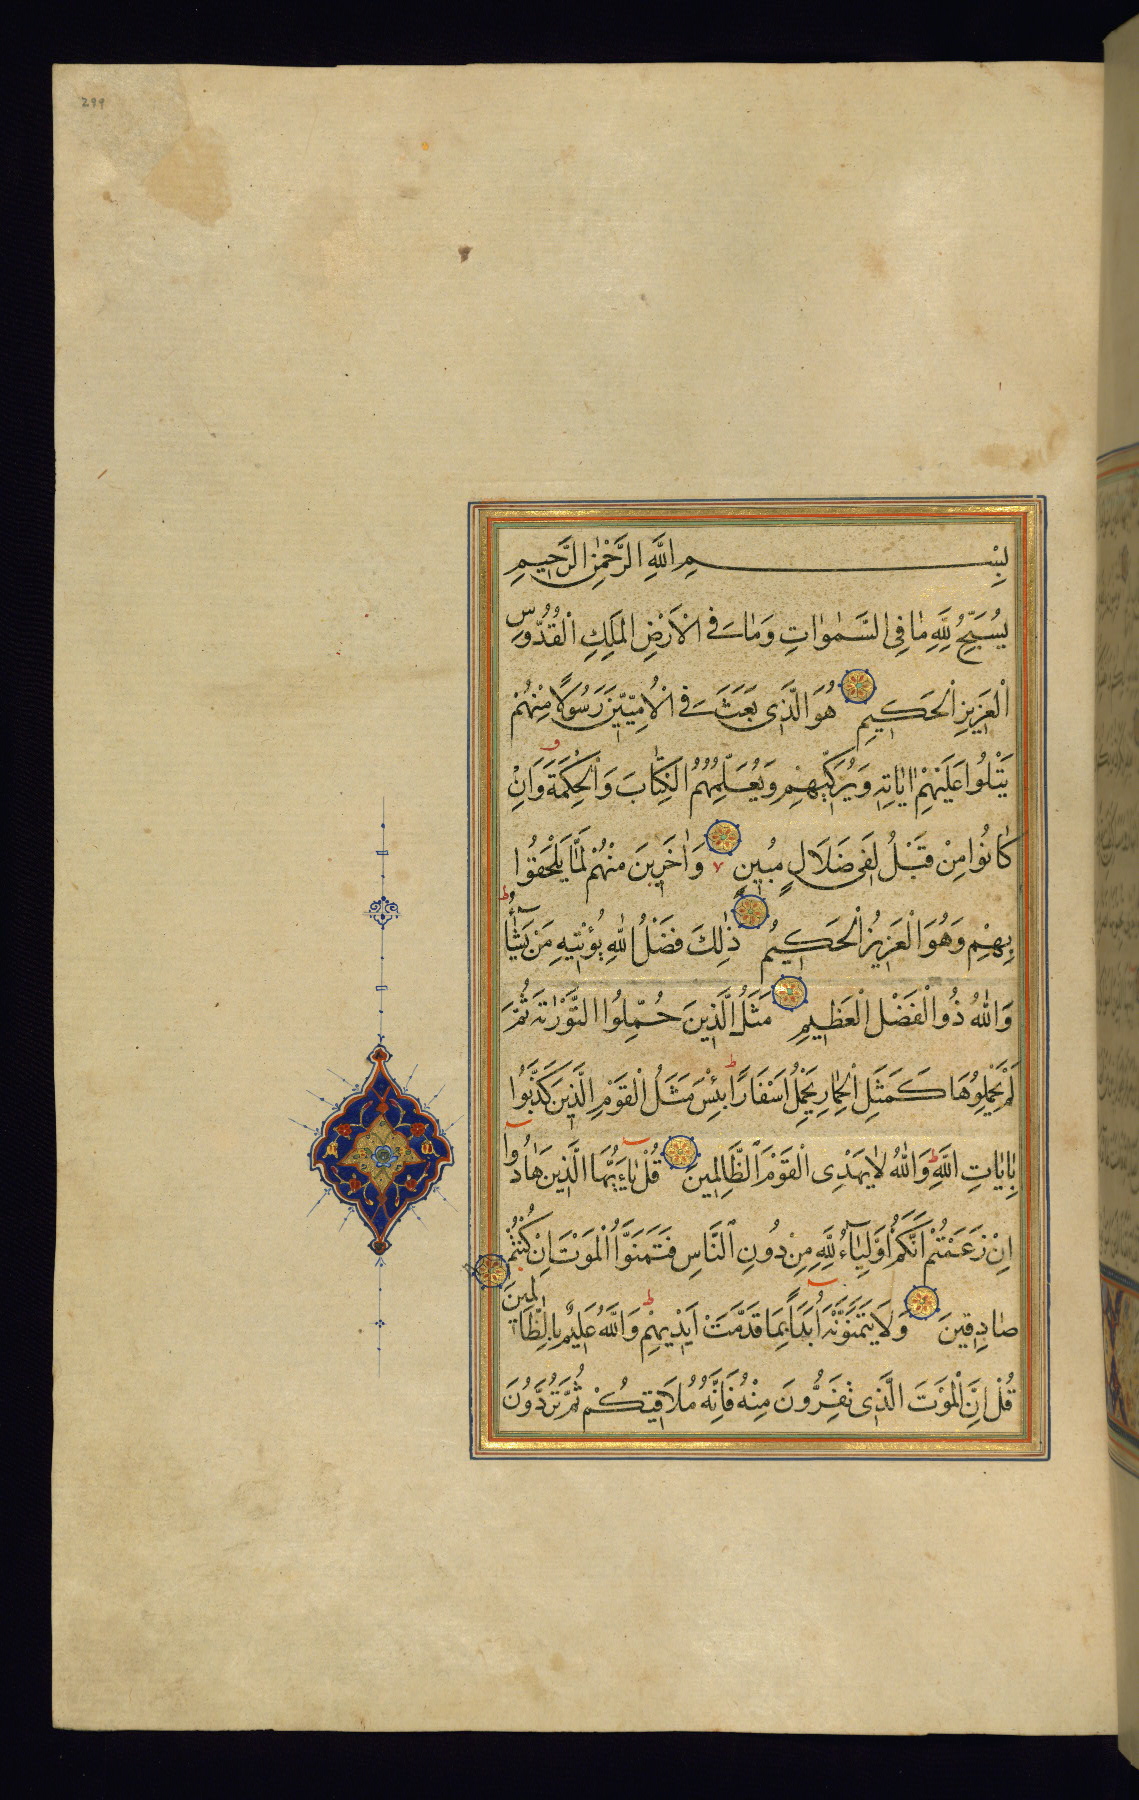 299
بِسْمِ اللَّهِ الرَّحْمٰنِ الرَّحِيمِ
يُسَبِّحُ لِلَّهِ مَا فِى السَّمٰوَاتِ وَمَا فِى الْاَرْضِ الْمَلِكِ الْقُدُّوسِ
الْعَزِيزِ الْحَكِيمِ هُوَ الَّذِى بَعَثَ فِى الْاُمِّيّٖنَ رَسُولًا مِنْهُمْ
يَتْلُوا عَلَيْهِمْ اٰيَاتِهٖ وَيُزَكّٖيهِمْ وَيُعَلِّمُهُمُ الْكِتَابَ وَالْحِكْمَةَ وَاِنْ
كَانُوا مِنْ قَبْلُ لَفٖى ضَلَالٍ مُبٖينٍ ٧ وَاٰخَرٖينَ مِنْهُمْ لَمَّا يَلْحَقُوا
بِهِمْ وَهُوَ الْعَزِيزُ الْحَكِيمُ ذٰلِكَ فَضْلُ اللّٰهِ يُؤْتٖيهِ مَنْ يَشَٓاءُ ط
وَاللّٰهُ ذُو الْفَضْلِ الْعَظٖيمِ مَثَلُ الَّذٖينَ حُمِّلُوا التَّوْرٰيةَ ثُمَّ
لَمْ يَحْمِلُوهَا كَمَثَلِ الْحِمَارِ يَحْمِلُ اَسْفَارًا ط بِئْسَ مَثَلُ الْقَوْمِ الَّذٖينَ كَذَّبُوا
بِاٰيَاتِ اللَّهِ ط وَاللّٰهُ لَا يَهْدِى الْقَوْمَ الظَّالِمٖينَ قُلْ يَٓا اَيُّهَا الَّذٖينَ هَادُٓوا
اِنْ زَعَمْتُمْ اَنَّكُمْ اَوْلِيَٓاءُ لِلَّهِ مِنْ دُونِ النَّاسِ فَتَمَنَّوُا الْمَوْتَ اِنْ كُنْتُمْ
صَادِقٖينَ وَلَا يَتَمَنَّوْنَهُٓ اَبَدًا بِمَا قَدَّمَتْ اَيْدٖيهِمْ ط وَاللَّهُ عَلٖيمٌ بِالظَّالِمٖينَ
قُلْ اِنَّ الْمَوْتَ الَّذٖى تَفِرُّونَ مِنْهُ فَاِنَّهُ مُلَاقٖيكُمْ ثُمَّ تُرَدُّونَ